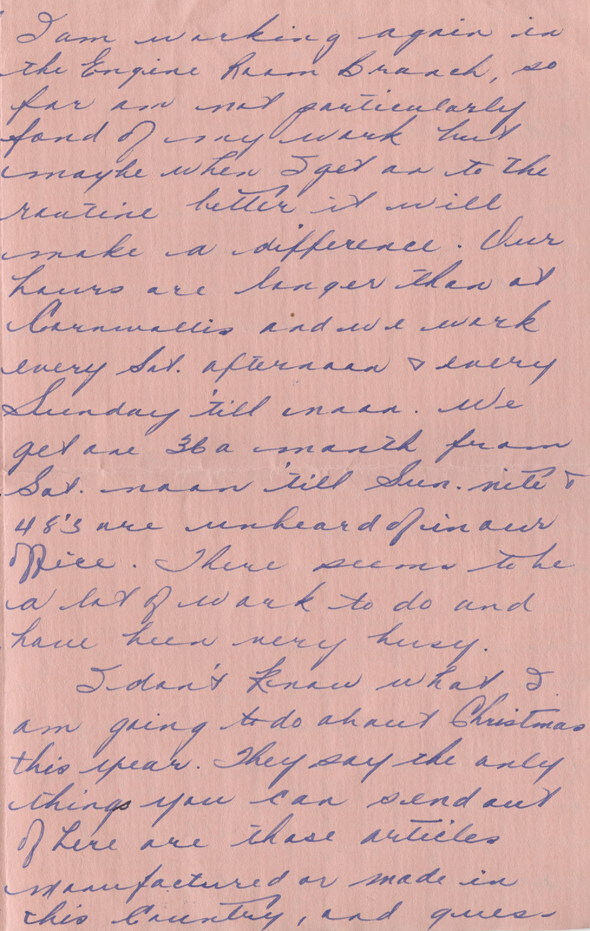 I am working again in
the Engine Room Branch, so
far am not particularly
fond of my work but
maybe when I get on to the
routine better it will
make a difference. Our
hours are longer than at
Cornwallis and we work
every Sat. afternoon & every
Sunday 'till noon. We
get one 36 a month from
Sat. noon 'till Sun. nite &
48's are unheard of in our
office. There seems to be
a lot of work to do and
have been very busy.
I don't know what I
am going to do about Christmas
this year. They say the only
things you can send out
of here are those articles
manufactured or made in
this Country, and ques-